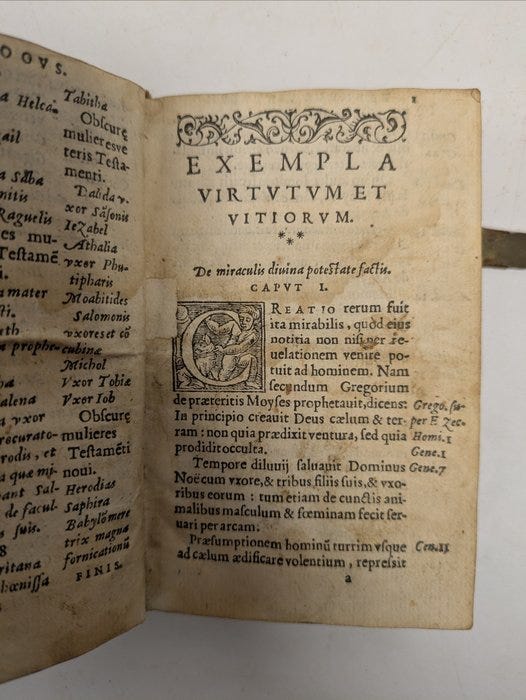 OOVS.
a Helca-
ail
a Saba
nitis
Raguelis
es mu-
Testamē
i.
a mater
sti.
uth
a prophe-
ba
alena
a vxor
rocurato-
rodis, et
a quæ mi-
bant Sal-
de facul-
s suis.
8
ritana
hœnissa
Tabitha
Obscurę
mulieresve
teris Testa-
menti.
Dalida v-
xor Sāsonis
IeZabel
Athalia
vxor Phu-
tipharis
Moabitides
Salomonis
vxores et cō
cubinæ
Michol
Vxor Tobiæ
Vxor Iob
Obscurę
mulieres
Testamēti
noui.
Herodias
Saphira
Babylō mere
trix magna
fornicationū
FINIS.
1
EXEMPLA
VIRTVTVM ET
VITIORVM.
De miraculis diuina potestate factis.
CAPVT I.
CREATIO rerum fuit
ita mirabilis, quòd eius
notitia non nisi per re-
uelationem venire po-
tuit ad hominem. Nam
secundum Gregorium
de præteritis Moyses prophetauit, dicens: Grego. su-
In principio creauit Deus cælum & ter- per E Zec.
ram: non quia prædixit ventura, sed quia Homi. 1
prodidit occulta. Gene. 1
Tempore diluuij saluauit Dominus Gene. 7
Noë cum vxore, & tribus filiis suis, & vxo-
ribus eorum: tum etiam de cunctis ani-
malibus masculum & fœminam fecit ser-
uari per arcam.
Præsumptionem hominū turrim vsque Gen. 11
ad cælum ædificare volentium, repressit
a